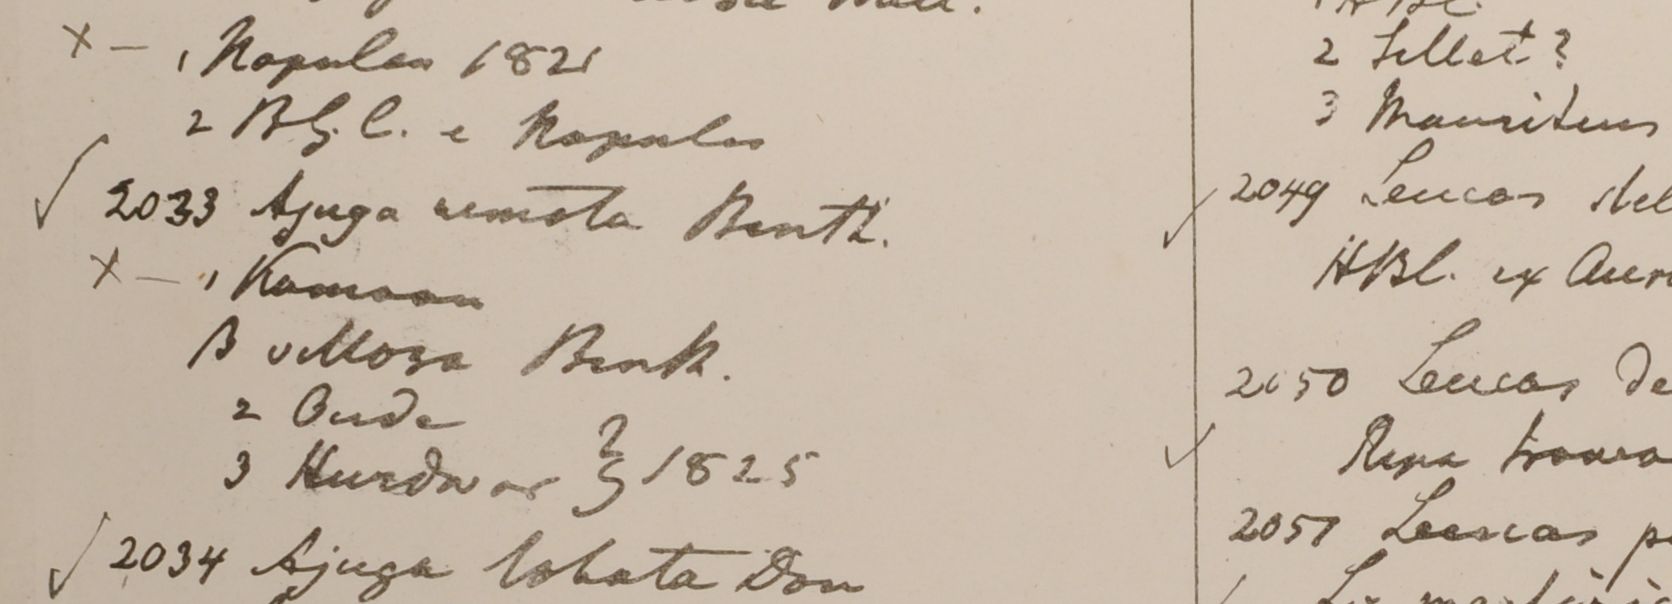 Wall.
x — 1 Napulea 1821
2 B.G.C. e Napulia
✓ 2033 Ajuga remota Benth.
x — 1 Kamaon
β villosa Benth.
2 Oude
3 Hurdwar } 1825
✓ 2034 Ajuga lobata Don
HBC.
2 Sillet?
3 Mauritius
✓ 2049 Leucas del
HBC. ex
2050 Leucas de
✓ Ripa
2051 Leucas p